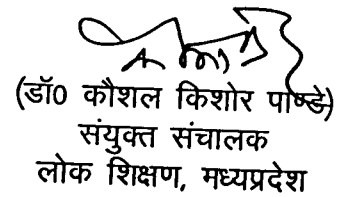 (डॉ0 कौशल किशोर पाण्डे)
संयुक्त संचालक
लोक शिक्षण, मध्यप्रदेश